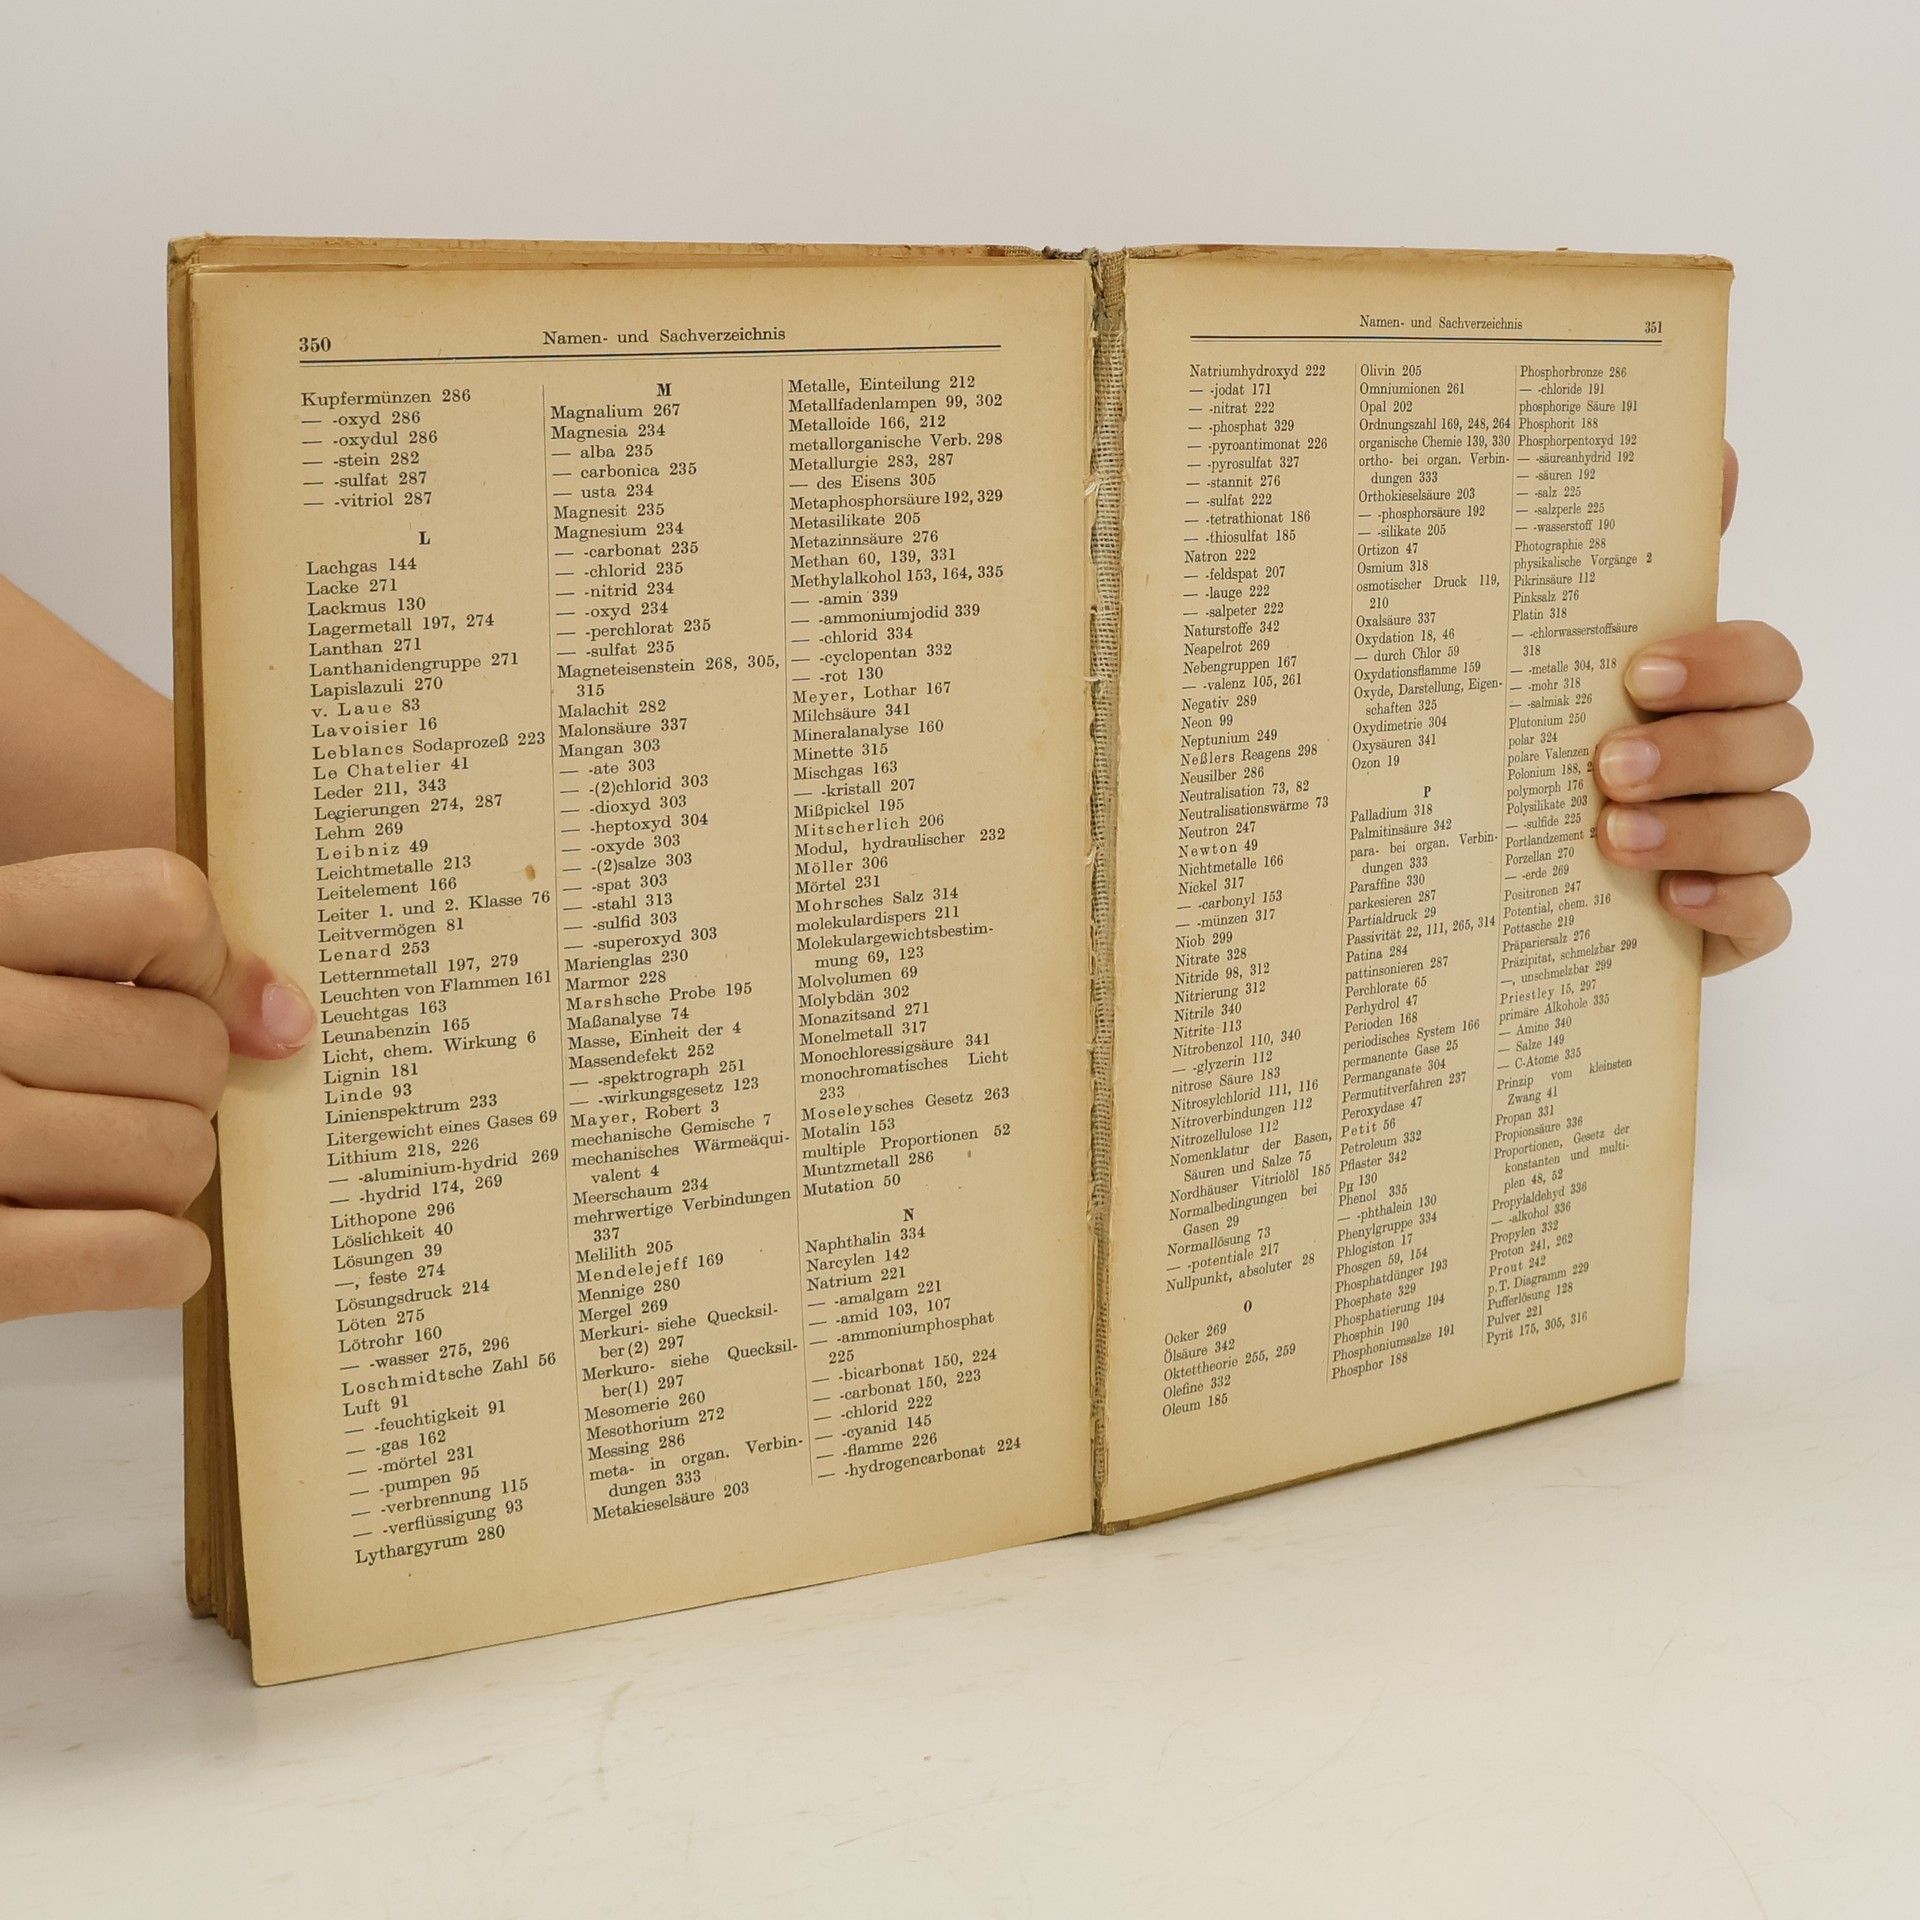 350
Namen- und Sachverzeichnis
Kupfermünzen 286
— -oxyd 286
— -oxydul 286
— -stein 282
— -sulfat 287
— -vitriol 287
L
Lachgas 144
Lacke 271
Lackmus 130
Lagermetall 197, 274
Lanthan 271
Lanthanidengruppe 271
Lapislazuli 270
v. Laue 83
Lavoisier 16
Leblancs Sodaprozeß 223
Le Chatelier 41
Leder 211, 343
Legierungen 274, 287
Lehm 269
Leibniz 49
Leichtmetalle 213
Leitelement 166
Leiter 1. und 2. Klasse 76
Leitvermögen 81
Lenard 253
Letternmetall 197, 279
Leuchten von Flammen 161
Leuchtgas 163
Leunabenzin 165
Licht, chem. Wirkung 6
Lignin 181
Linde 93
Linienspektrum 233
Litergewicht eines Gases 69
Lithium 218, 226
— -aluminium-hydrid 269
— -hydrid 174, 269
Lithopone 296
Löslichkeit 40
Lösungen 39
—, feste 274
Lösungsdruck 214
Löten 275
Lötrohr 160
— -wasser 275, 296
Loschmidtsche Zahl 56
Luft 91
— -feuchtigkeit 91
— -gas 162
— -mörtel 231
— -pumpen 95
— -verbrennung 115
— -verflüssigung 93
Lythargyrum 280
M
Magnalium 267
Magnesia 234
— alba 235
— carbonica 235
— usta 234
Magnesit 235
Magnesium 234
— -carbonat 235
— -chlorid 235
— -nitrid 234
— -oxyd 234
— -perchlorat 235
— -sulfat 235
Magneteisenstein 268, 305,
315
Malachit 282
Malonsäure 337
Mangan 303
— -ate 303
— -(2)chlorid 303
— -dioxyd 303
— -heptoxyd 304
— -oxyde 303
— -(2)salze 303
— -spat 303
— -stahl 313
— -sulfid 303
— -superoxyd 303
Marienglas 230
Marmor 228
Marshsche Probe 195
Maßanalyse 74
Masse, Einheit der 4
Massendefekt 252
— -spektrograph 251
— -wirkungsgesetz 123
Mayer, Robert 3
mechanische Gemische 7
mechanisches Wärmeäqui-
valent 4
Meerschaum 234
mehrwertige Verbindungen
337
Melilith 205
Mendelejeff 169
Mennige 280
Mergel 269
Merkuri- siehe Quecksil-
ber (2) 297
Merkuro- siehe Quecksil-
ber(1) 297
Mesomerie 260
Mesothorium 272
Messing 286
meta- in organ. Verbin-
dungen 333
Metakieselsäure 203
Metalle, Einteilung 212
Metallfadenlampen 99, 302
Metalloide 166, 212
metallorganische Verb. 298
Metallurgie 283, 287
— des Eisens 305
Metaphosphorsäure 192, 329
Metasilikate 205
Metazinnsäure 276
Methan 60, 139, 331
Methylalkohol 153, 164, 335
— -amin 339
— -ammoniumjodid 339
— -chlorid 334
— -cyclopentan 332
— -rot 130
Meyer, Lothar 167
Milchsäure 341
Mineralanalyse 160
Minette 315
Mischgas 163
— -kristall 207
Mißpickel 195
Mitscherlich 206
Modul, hydraulischer 232
Möller 306
Mörtel 231
Mohrsches Salz 314
molekulardispers 211
Molekulargewichtsbestim-
mung 69, 123
Molvolumen 69
Molybdän 302
Monazitsand 271
Monelmetall 317
Monochloressigsäure 341
monochromatisches Licht
233
Moseleysches Gesetz 263
Motalin 153
multiple Proportionen 52
Muntzmetall 286
Mutation 50
N
Naphthalin 334
Narcylen 142
Natrium 221
— -amalgam 221
— -amid 103, 107
— -ammoniumphosphat
225
— -bicarbonat 150, 224
— -carbonat 150, 223
— -chlorid 222
— -cyanid 145
— -flamme 226
— -hydrogencarbonat 224
Namen- und Sachverzeichnis
351
Natriumhydroxyd 222
— -jodat 171
— -nitrat 222
— -phosphat 329
— -pyroantimonat 226
— -pyrosulfat 327
— -stannit 276
— -sulfat 222
— -tetrathionat 186
— -thiosulfat 185
Natron 222
— -feldspat 207
— -lauge 222
— -salpeter 222
Naturstoffe 342
Neapelrot 269
Nebengruppen 167
— -valenz 105, 261
Negativ 289
Neon 99
Neptunium 249
Neßlers Reagens 298
Neusilber 286
Neutralisation 73, 82
Neutralisationswärme 73
Neutron 247
Newton 49
Nichtmetalle 166
Nickel 317
— -carbonyl 153
— -münzen 317
Niob 299
Nitrate 328
Nitride 98, 312
Nitrierung 312
Nitrile 340
Nitrite 113
Nitrobenzol 110, 340
— -glyzerin 112
nitrose Säure 183
Nitrosylchlorid 111, 116
Nitroverbindungen 112
Nitrozellulose 112
Nomenklatur der Basen,
Säuren und Salze 75
Nordhäuser Vitriolöl 185
Normalbedingungen bei
Gasen 29
Normallösung 73
— -potentiale 217
Nullpunkt, absoluter 28
O
Ocker 269
Ölsäure 342
Oktettheorie 255, 259
Olefine 332
Oleum 185
Olivin 205
Omniumionen 261
Opal 202
Ordnungszahl 169, 248, 264
organische Chemie 139, 330
ortho- bei organ. Verbin-
dungen 333
Orthokieselsäure 203
— -phosphorsäure 192
— -silikate 205
Ortizon 47
Osmium 318
osmotischer Druck 119,
210
Oxalsäure 337
Oxydation 18, 46
— durch Chlor 59
Oxydationsflamme 159
Oxyde, Darstellung, Eigen-
schaften 325
Oxydimetrie 304
Oxysäuren 341
Ozon 19
P
Palladium 318
Palmitinsäure 342
para- bei organ. Verbin-
dungen 333
Paraffine 330
parkesieren 287
Partialdruck 29
Passivität 22, 111, 265, 314
Patina 284
pattinsonieren 287
Perchlorate 65
Perhydrol 47
Perioden 168
periodisches System 166
permanente Gase 25
Permanganate 304
Permutitverfahren 237
Peroxydase 47
Petit 56
Petroleum 332
Pflaster 342
PH 130
Phenol 335
— -phthalein 130
Phenylgruppe 334
Phlogiston 17
Phosgen 59, 154
Phosphatdünger 193
Phosphate 329
Phosphatierung 194
Phosphin 190
Phosphoniumsalze 191
Phosphor 188
Phosphorbronze 286
— -chloride 191
phosphorige Säure 191
Phosphorit 188
Phosphorpentoxyd 192
— -säureanhydrid 192
— -säuren 192
— -salz 225
— -salzperle 225
— -wasserstoff 190
Photographie 288
physikalische Vorgänge 2
Pikrinsäure 112
Pinksalz 276
Platin 318
— -chlorwasserstoffsäure
318
— -metalle 304, 318
— -mohr 318
— -salmiak 226
Plutonium 250
polar 324
polare Valenzen
Polonium 188,
polymorph 176
Polysilikate 203
— -sulfide 225
Portlandzement
Porzellan 270
— -erde 269
Positronen 247
Potential, chem. 316
Pottasche 219
Präpariersalz 276
Präzipitat, schmelzbar 299
—, unschmelzbar 299
Priestley 15, 297
primäre Alkohole 335
— Amine 340
— Salze 149
— C-Atome 335
Prinzip vom kleinsten
Zwang 41
Propan 331
Propionsäure 336
Proportionen, Gesetz der
konstanten und multi-
plen 48, 52
Propylaldehyd 336
— -alkohol 336
Propylen 332
Proton 241, 262
Prout 242
p.T. Diagramm 229
Pufferlösung 128
Pulver 221
Pyrit 175, 305, 316